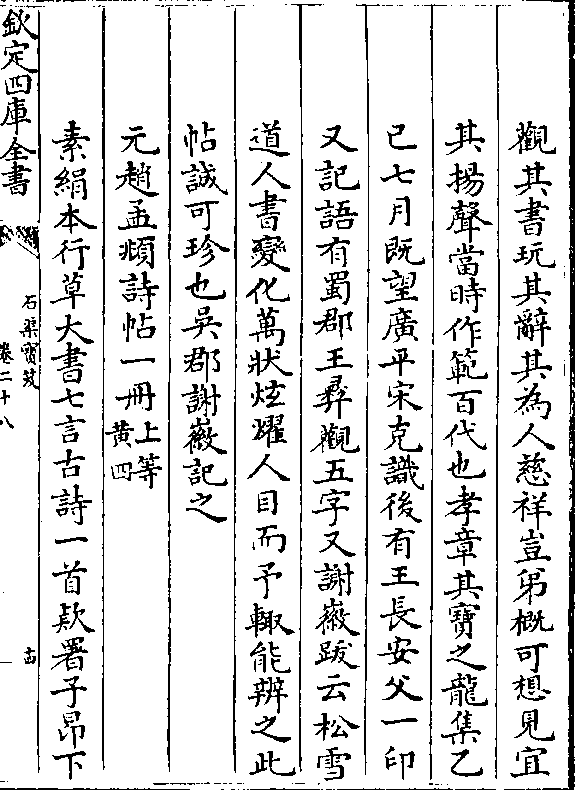 觀其書玩其辭其為人慈祥豈弟概可想見宜
其揚聲當時作範百代也孝章其寶之龍集乙
巳七月既望廣平宋克識後有王長安父一印
又記語有蜀郡王彝觀五字又謝徽跋云松雪
道人書變化萬狀炫燿人目而予輙能辨之此
帖誠可珍也吳郡謝徽記之
元趙孟頫詩帖一冊上等
黄四
素絹本行草大書七言古詩一首欵署子昂下
欽定四庫全書
石渠寶笈
卷二十八
十四